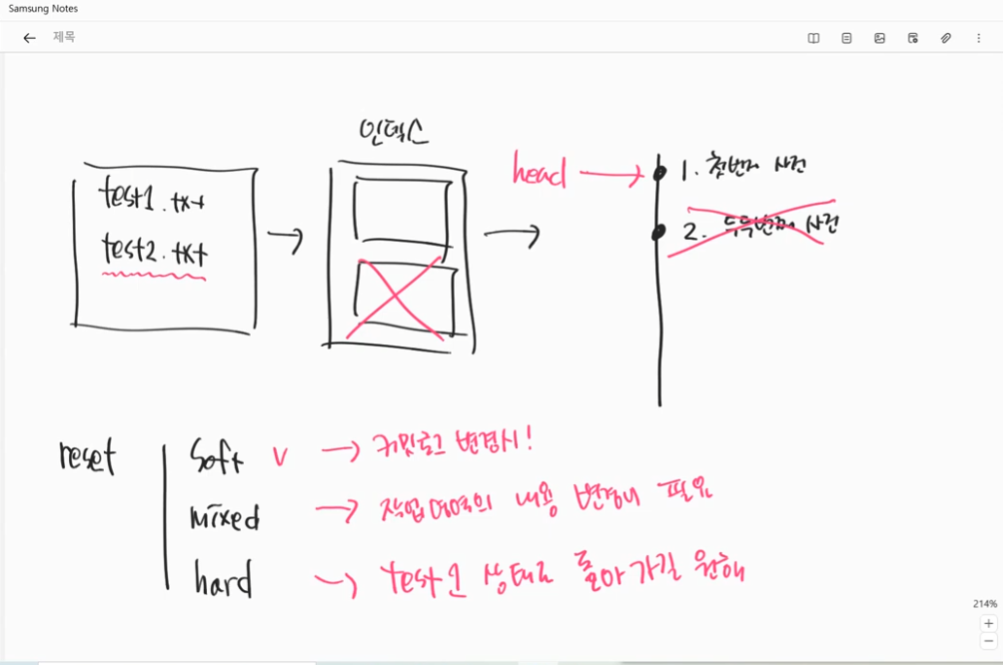 Samsung Notes
제목
인덱스
test1.txt
test2.txt
head
1. 첫번째 사건
2. 두번째 사건
reset
soft v → 커밋로그 변경시!
mixed → 작업영역의 내용 변경이 필요
hard → test1 상태로 돌아가길 원해
214%